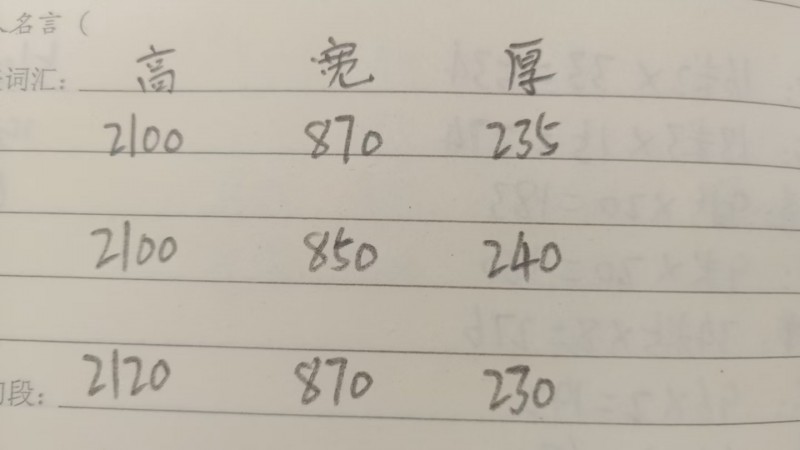 人名言（
词汇： 高 宽 厚
2100 870 235
2100 850 240
2120 870 230
段：